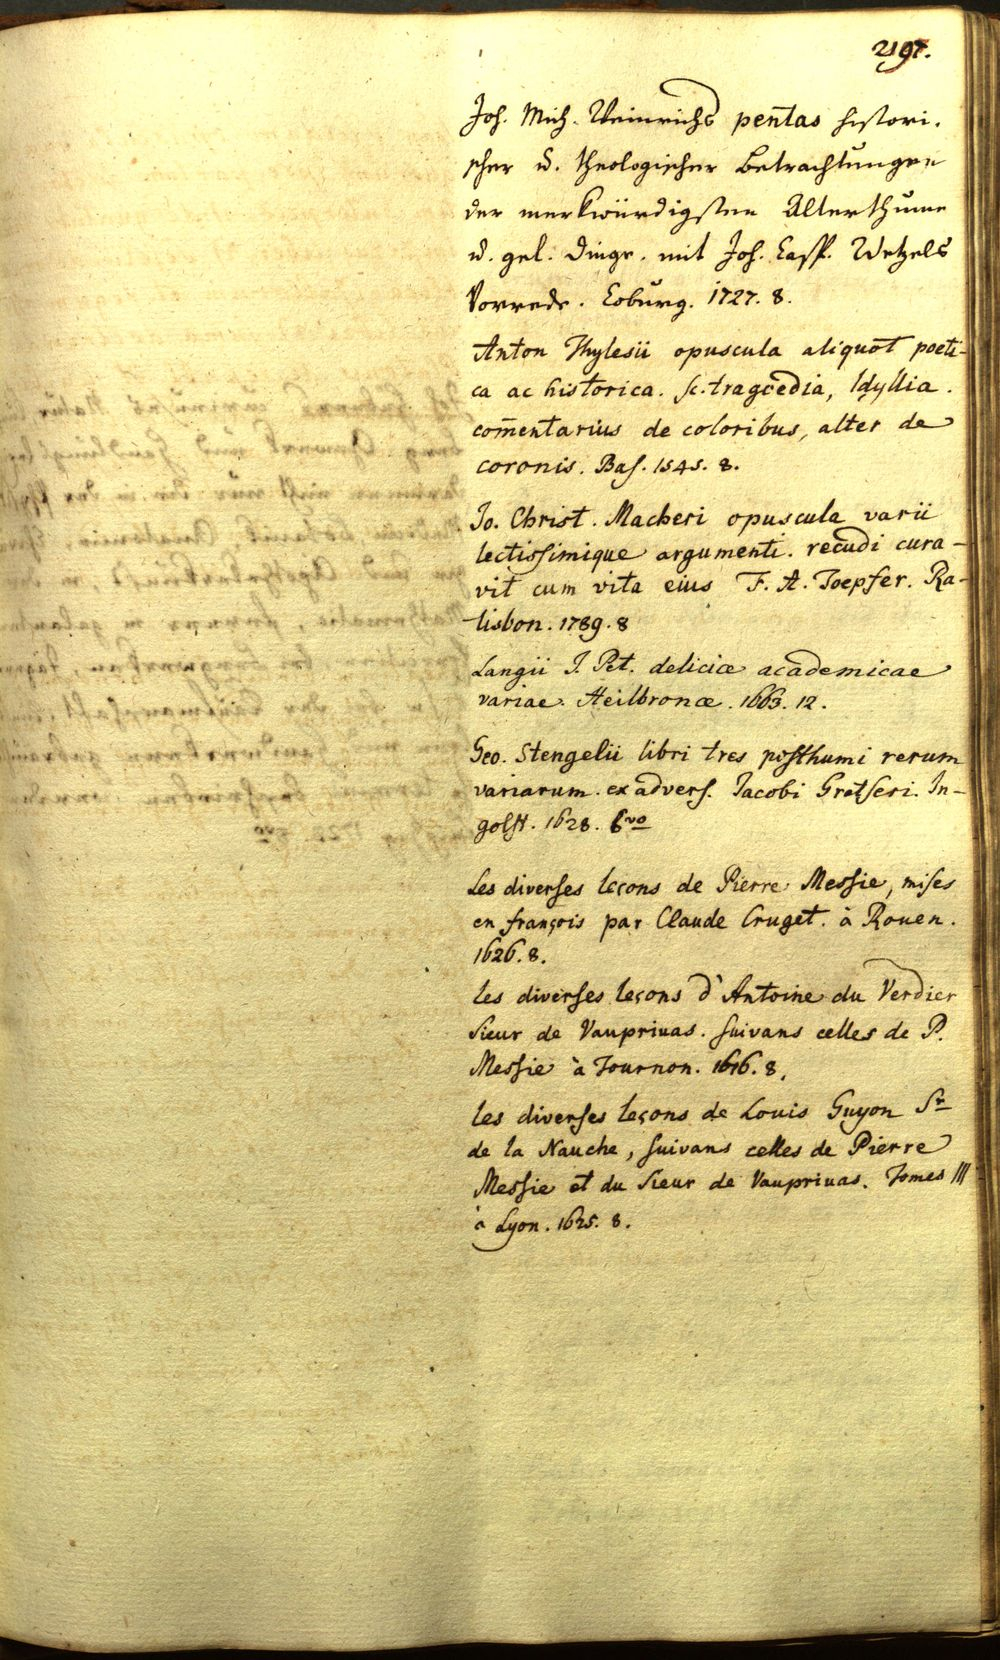 2197.
Joh. Mich. Weinrichs pentas histori-
scher u. theologischer Betrachtungen
der merkwürdigsten Alterthüme
u. gel. Dinge. mit Joh. Casp. Wetzels
Vorrede. Coburg. 1727. 8.
Anton Thylesii opuscula aliquot poeti-
ca ac historica. sc. tragœdia, Idyllia.
com̄entarius de coloribus, alter de
coronis. Bas. 1545. 8.
Jo. Christ. Macheri opuscula varii
lectissimique argumenti. recudi cura-
vit cum vita eius F. A. Toepfer. Ra-
tisbon. 1789. 8
Langii J. Pet. deliciæ academicae
variae. Heilbronæ. 1663. 12.
Geo. Stengelii libri tres posthumi rerum
variarum. ex advers. Jacobi Gretseri. In-
golst. 1628. 8vo
Les diverses leçons de Pierre Messie, mises
en françois par Claude Cruget. à Rouen.
1626. 8.
les diverses leçons d'Antoine du Verdier
sieur de Vauprivas. suivans celles de P.
Messie à Tournon. 1616. 8.
les diverses leçons de Louis Guyon Sr
de la Nauche, suivans celles de Pierre
Messie et du sieur de Vauprivas. Tomes III
à Lyon. 1625. 8.